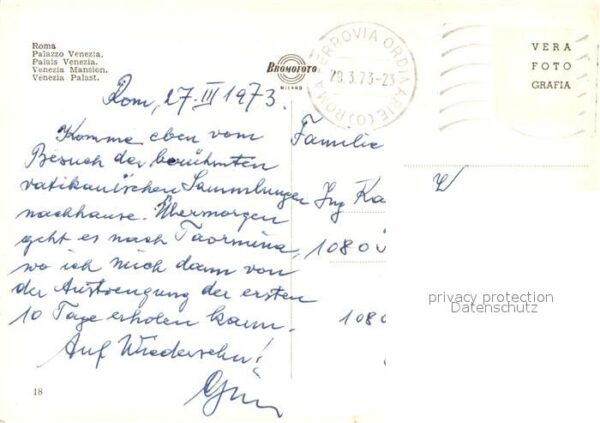 Roma
Palazzo Venezia.
Palais Venezia.
Venezia Mansion.
Venezia Palast.
BROMOFOTO
MILANO
FERROVIA ORDINARIE (C) ROMA
29.3.73-23
VERA
FOTO
GRAFIA
Rom, 27. III 1973.
Komme eben vom
Besuch der berühmten
vatikanischen Sammlungen
nachhause. Übermorgen
geht es nach Taormina,
wo ich mich dann von
der Anstrengung der ersten
10 Tage erholen kann.
Auf Wiedersehn!
Familie
Ing Ka
1080
1080
privacy protection
Datenschutz
18